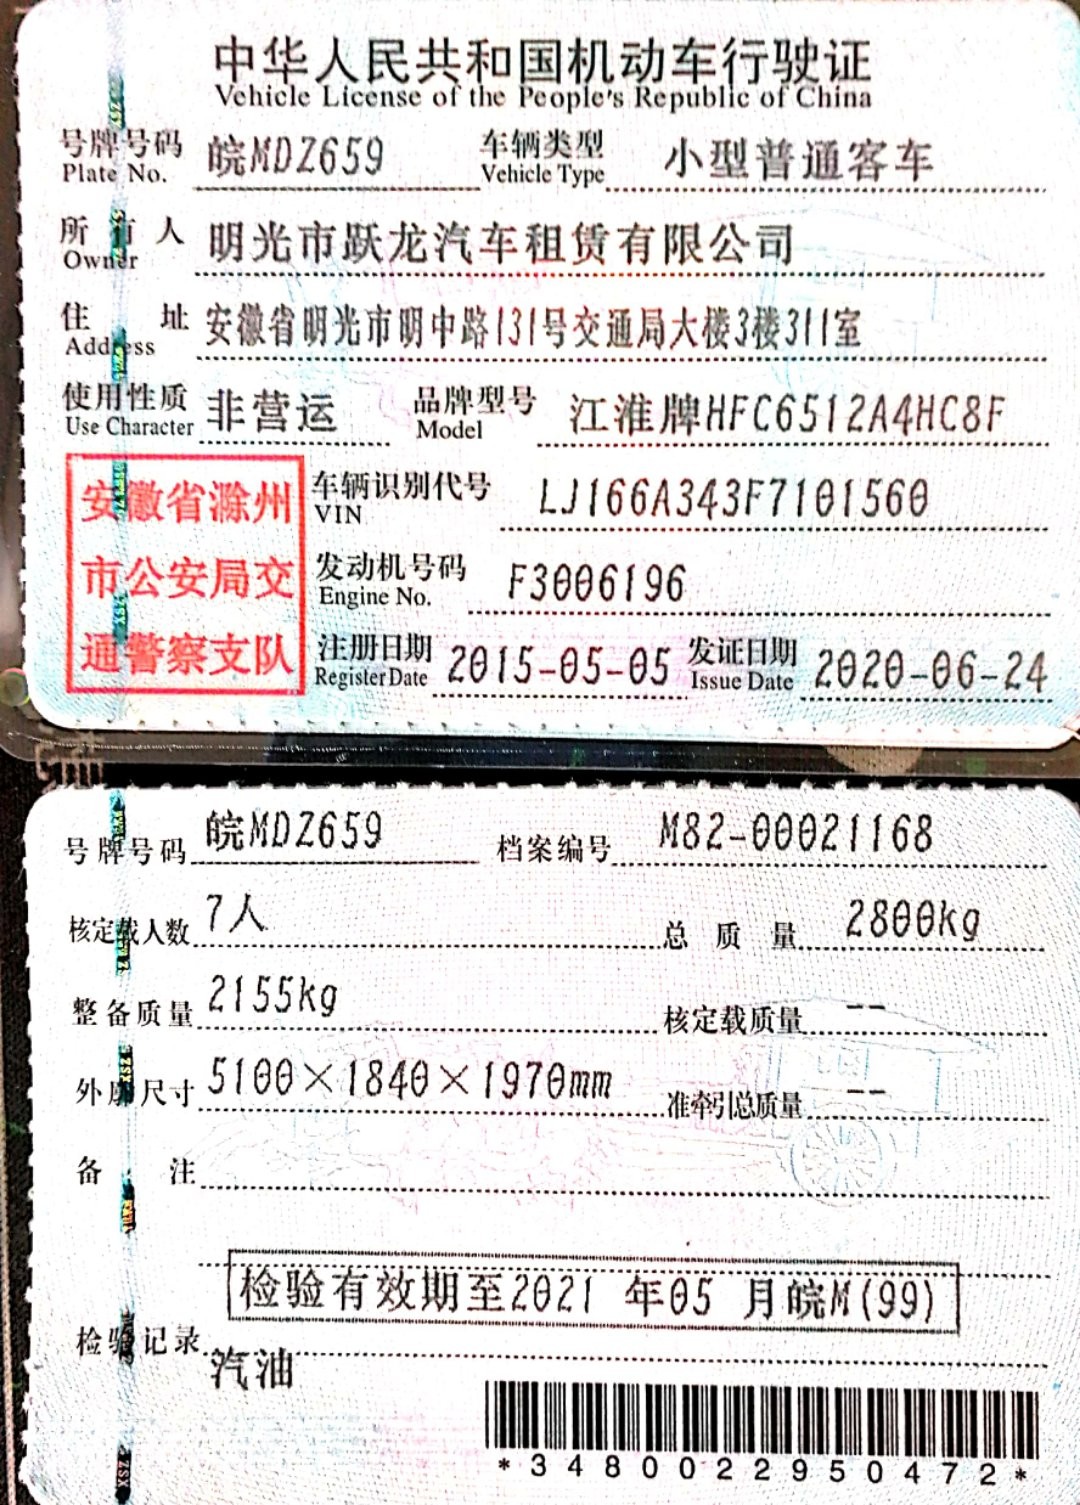 中华人民共和国机动车行驶证
Vehicle License of the People's Republic of China
号牌号码 皖MDZ659 车辆类型 小型普通客车
Plate No. Vehicle Type
所有人 明光市跃龙汽车租赁有限公司
Owner
住址 安徽省明光市明中路131号交通局大楼3楼311室
Address
使用性质 非营运 品牌型号 江淮牌HFC6512A4HC8F
Use Character Model
安徽省滁州
市公安局交
通警察支队
车辆识别代号 LJ166A343F7101560
VIN
发动机号码 F3006196
Engine No.
注册日期 2015-05-05 发证日期 2020-06-24
Register Date Issue Date
号牌号码 皖MDZ659 档案编号 M82-00021168
核定载人数 7人 总质量 2800kg
整备质量 2155kg 核定载质量 --
外廓尺寸 5100×1840×1970mm 准牵引总质量 --
备注
检验有效期至2021 年05 月皖M(99)
检验记录
汽油
*3480022950472*